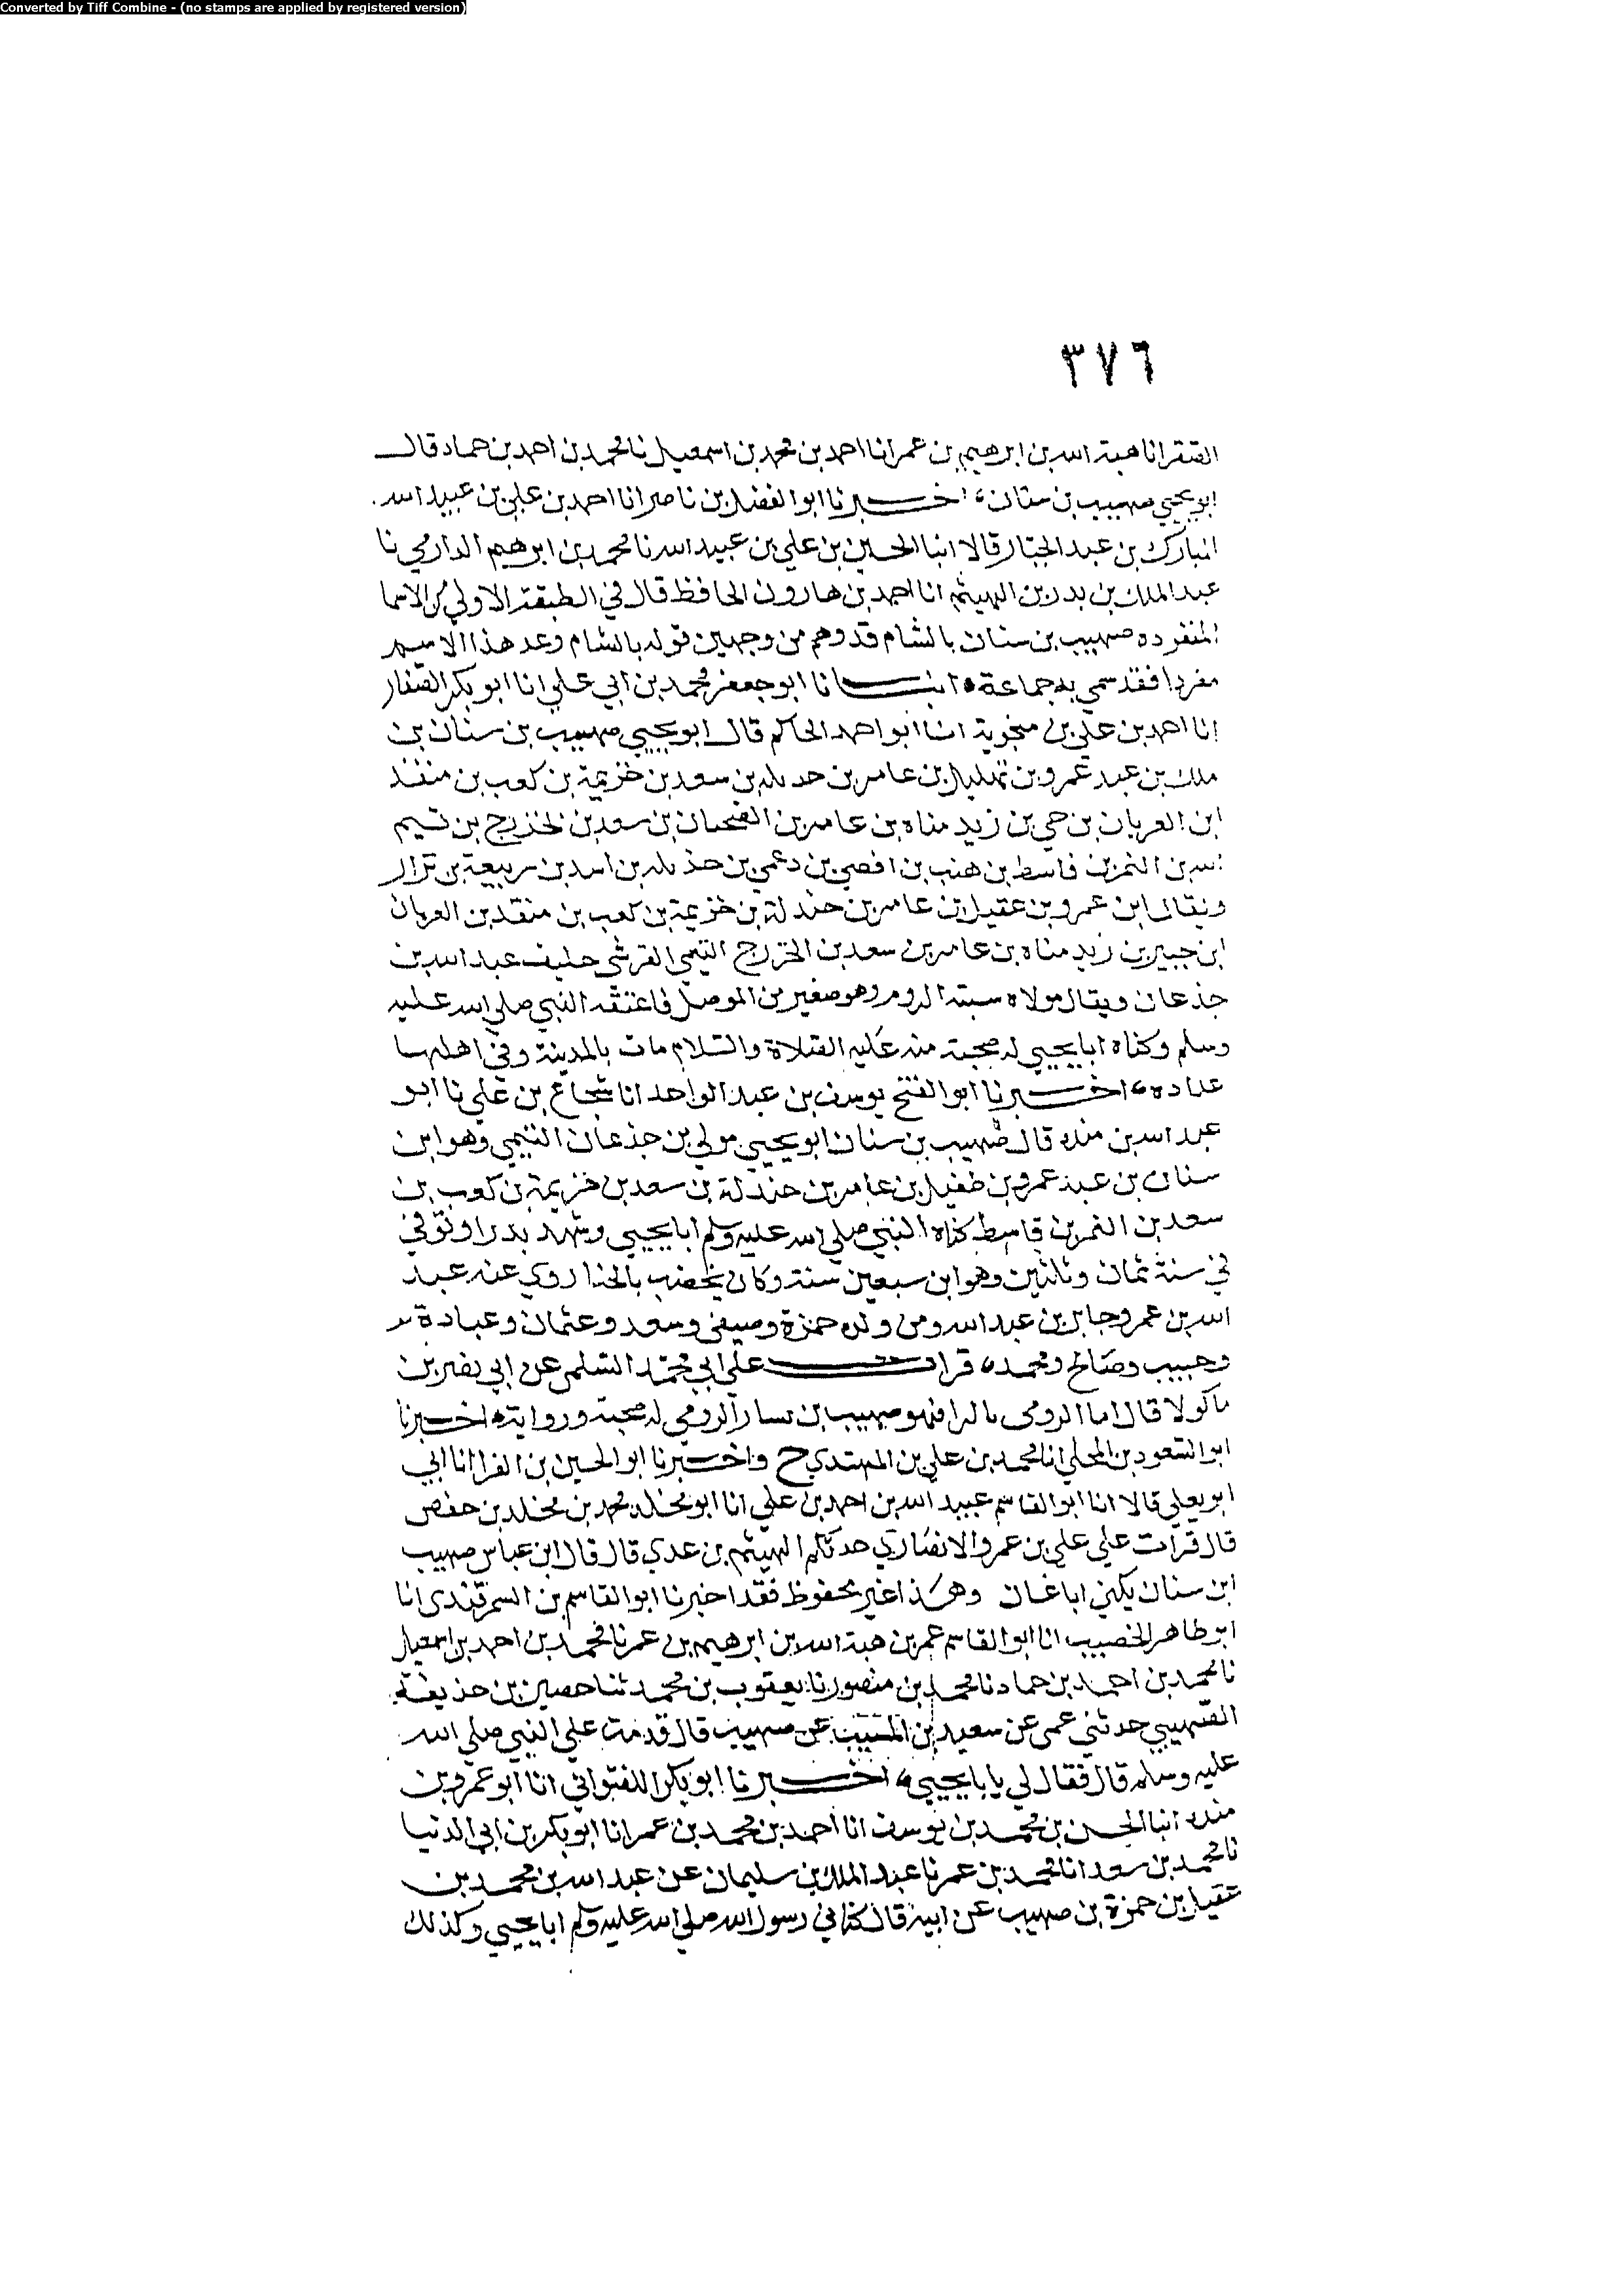 Converted by Tiff Combine - (no stamps are applied by registered version)
٣٧٦
انا هبة الله بن ابرهيم بن عمر انا احمد بن محمد بن اسمعيل نا محمد بن احمد بن حماد قال
ابو يحيي صهيب بن سنان اخبرنا ابو الفضل بن ناصر انا احمد بن علي بن عبيد الله
المبارك بن عبد الجبار قالا انبا الحسين بن علي بن عبيد الله نا محمد بن ابرهيم الدارمي نا
عبد الملك بن بدر بن الهيثم انا احمد بن هارون الحافظ قال في الطبقة الاولي من الاسما
المنفرده صهيب بن سنان بالشام قد وهم من وجهين قوله بالشام وعد هذا الاسم
مفردا فقد سمي به جماعة انبانا ابو جعفر محمد بن ابي علي انا ابو بكر الصفار
انا احمد بن علي بن منجوية انا ابو احمد الحاكم قال ابو يحيي صهيب بن سنان بن
ملك بن عبد عمرو بن عامر بن سعد بن خزيمة بن كعب بن منقذ
ابن العريان بن حي بن زيد مناه بن عامر بن الضحيان بن سعد بن الخزرج بن تيم
بن النمر بن قاسط بن هنب بن افصي بن دعمي بن اسد بن ربيعة بن نزار
ويقال ابن عمرو بن عقيل بن عامر بن جندلة بن خزيمة بن كعب بن منقد بن العريان
ابن جبير بن زيد مناه بن عامر بن سعد بن الخزرج التيمي القرشي حليف عبد الله بن
جذعان ويقال مولاه سبته الروم وهو صغير من الموصل فاعتقه النبي صلي الله عليه
وسلم وكناه ابا يحيي له صحبة منه عليه الصلاة والسلام مات بالمدينة وفي اهلها
عداده اخبرنا ابو الفتح يوسف بن عبد الواحد انا شجاع بن علي نا ابو
عبد الله بن منده قال صهيب بن سنان ابو يحيي مولي بن جذعان التيمي وهو ابن
سنان بن عبد عمرو بن طفيل بن عامر بن جندلة بن سعد بن خزيمة بن كعب بن
سعد بن النمر بن قاسط كناه النبي صلي الله عليه وسلم ابا يحيي وشهد بدرا وتوفي
في سنة ثمان وثلثين وهو ابن سبعين سنة وكان يخضب بالحنا روي عنه عبد
الله بن عمر وجابر بن عبد الله ومن ولده حمزة وصيفي وسعد وعثمان وعبادة
وحبيب وصالح ومحمد قرات علي ابي محمد السلمي عن ابي نصر بن
ماكولا قال اما الرومي بالرا فهو صهيب بن سنان الرومي له صحبة ورواية اخبرنا
ابو السعود بن المجلي انا محمد بن علي بن المهتدي ح واخبرنا ابو الحسين بن الفرا انا ابي
ابو يعلي قالا انا ابو القاسم عبيد الله بن احمد بن علي انا ابو مخلد محمد بن مخلد بن حفص
قال قرات علي علي بن عمرو الانصاري حدثكم الهيثم بن عدي قال قال ابن عباس صهيب
ابن سنان يكني ابا غسان وهكذا غير محفوظ فقد اخبرنا ابو القاسم بن السمرقندي انا
ابو طاهر الخصيب انا ابو القاسم عمر بن هبة الله بن ابرهيم بن عمر نا محمد بن احمد بن اسمعيل
نا محمد بن احمد بن حماد نا محمد بن منصور نا يعقوب بن محمد ثنا حصين بن حذيفة
الصهيبي حدثني عمي عن سعيد بن المسيب عن صهيب قال قدمت علي النبي صلي الله
عليه وسلم قال فقال لي يا با يحيي اخبرنا ابو بكر اللفتواني انا ابو عمرو بن
منده انبا الحسن بن محمد بن يوسف انا احمد بن محمد بن عمر انا ابو بكر بن ابي الدنيا
نا محمد بن سعد انا محمد بن عمر نا عبد الملك بن سليمان عن عبد الله بن محمد بن
عقيل بن حمزة بن صهيب عن ابيه قال كناني رسول الله صلي الله عليه وسلم ابا يحيي وكذلك